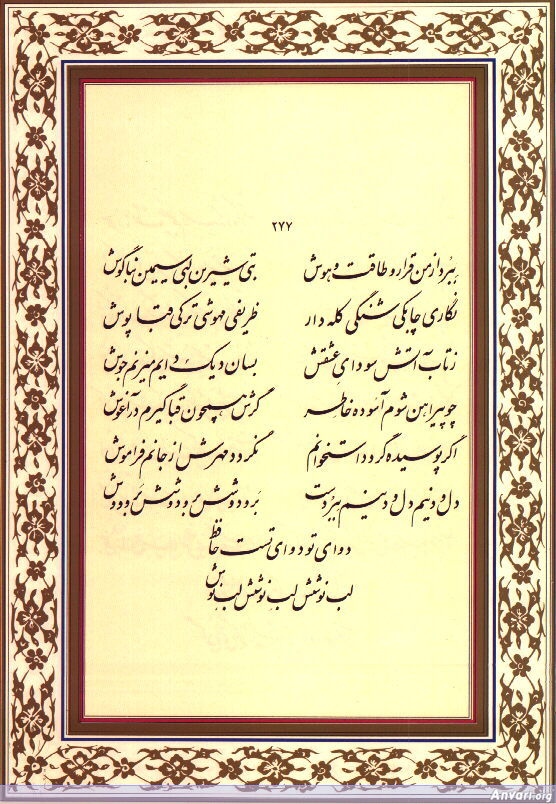 ۲۷۷
ببرد از من قرار و طاقت و هوش بتی شیرین لبی سیمین بناگوش
نگاری چابکی شنگی کله دار ظریفی مهوشی ترکی قباپوش
ز تاب آتش سودای عشقش بسان دیک دایم میزنم جوش
چو پیراهن شوم آسوده خاطر گرش همچون قبا گیرم در آغوش
اگر پوسیده گردد استخوانم نگردد مهرش از جانم فراموش
دل و دینم دل و دینم ببردست بر و دوشش بر و دوشش بر و دوش
دوای تو دوای تست حافظ
لب نوشش لب نوشش لب نوش
Anvari.org